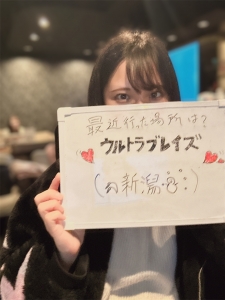 最近行った場所は?
ウルトラブレイズ
(in新潟
)